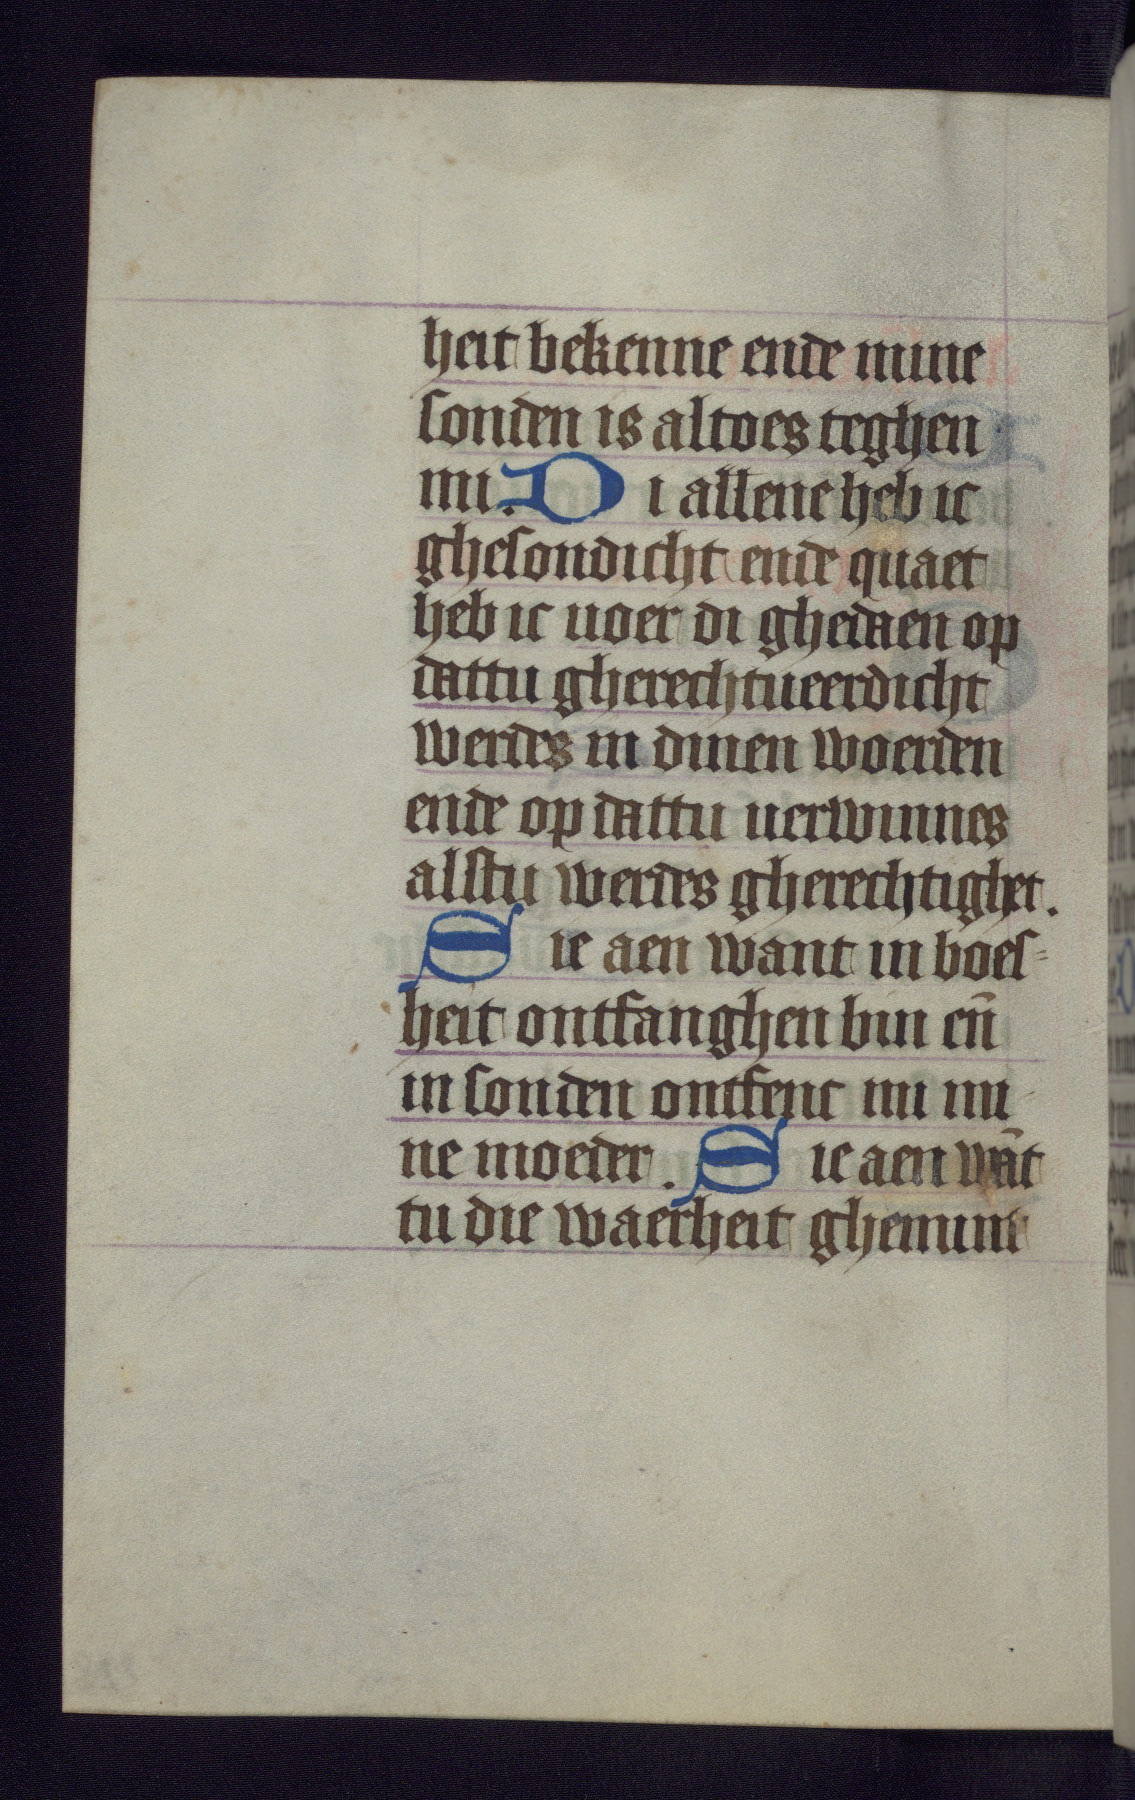 heit bekenne ende mine
sonden is altoes teghen
mi. Di allene heb ic
ghesondicht ende quaet
heb ic uoer di ghedaen op
dattu gherechtueerdicht
werdes in dinen woerden
ende op dattu uerwinnes
alstu werdes gherechtighet.
Sie aen want in boes-
heit ontfanghen bin en̄
in sonden ontfenc mi mi-
ne moeder. Sie aen wāt
tu die waerheit ghemint